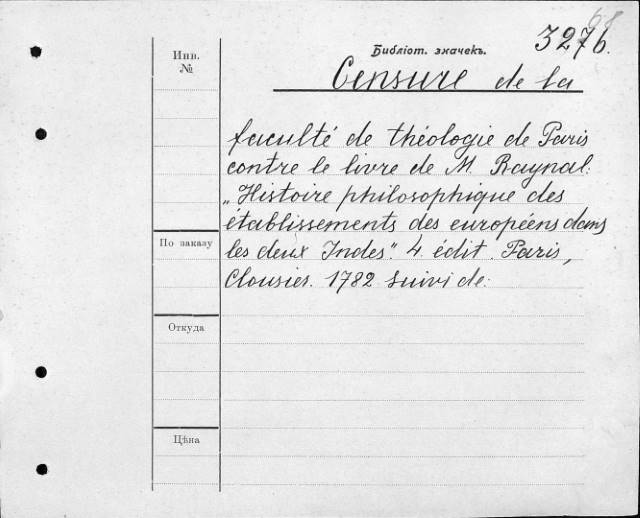 68
3276.
Инв.
№
Библіот. значекъ.
Censure de la
faculté de théologie de Paris
contre le livre de M. Raynal:
„Histoire philosophique des
établissements des européens dans
les deux Indes". 4. édit. Paris,
Clousier. 1782. Suivi de:
По заказу
Откуда
Цѣна